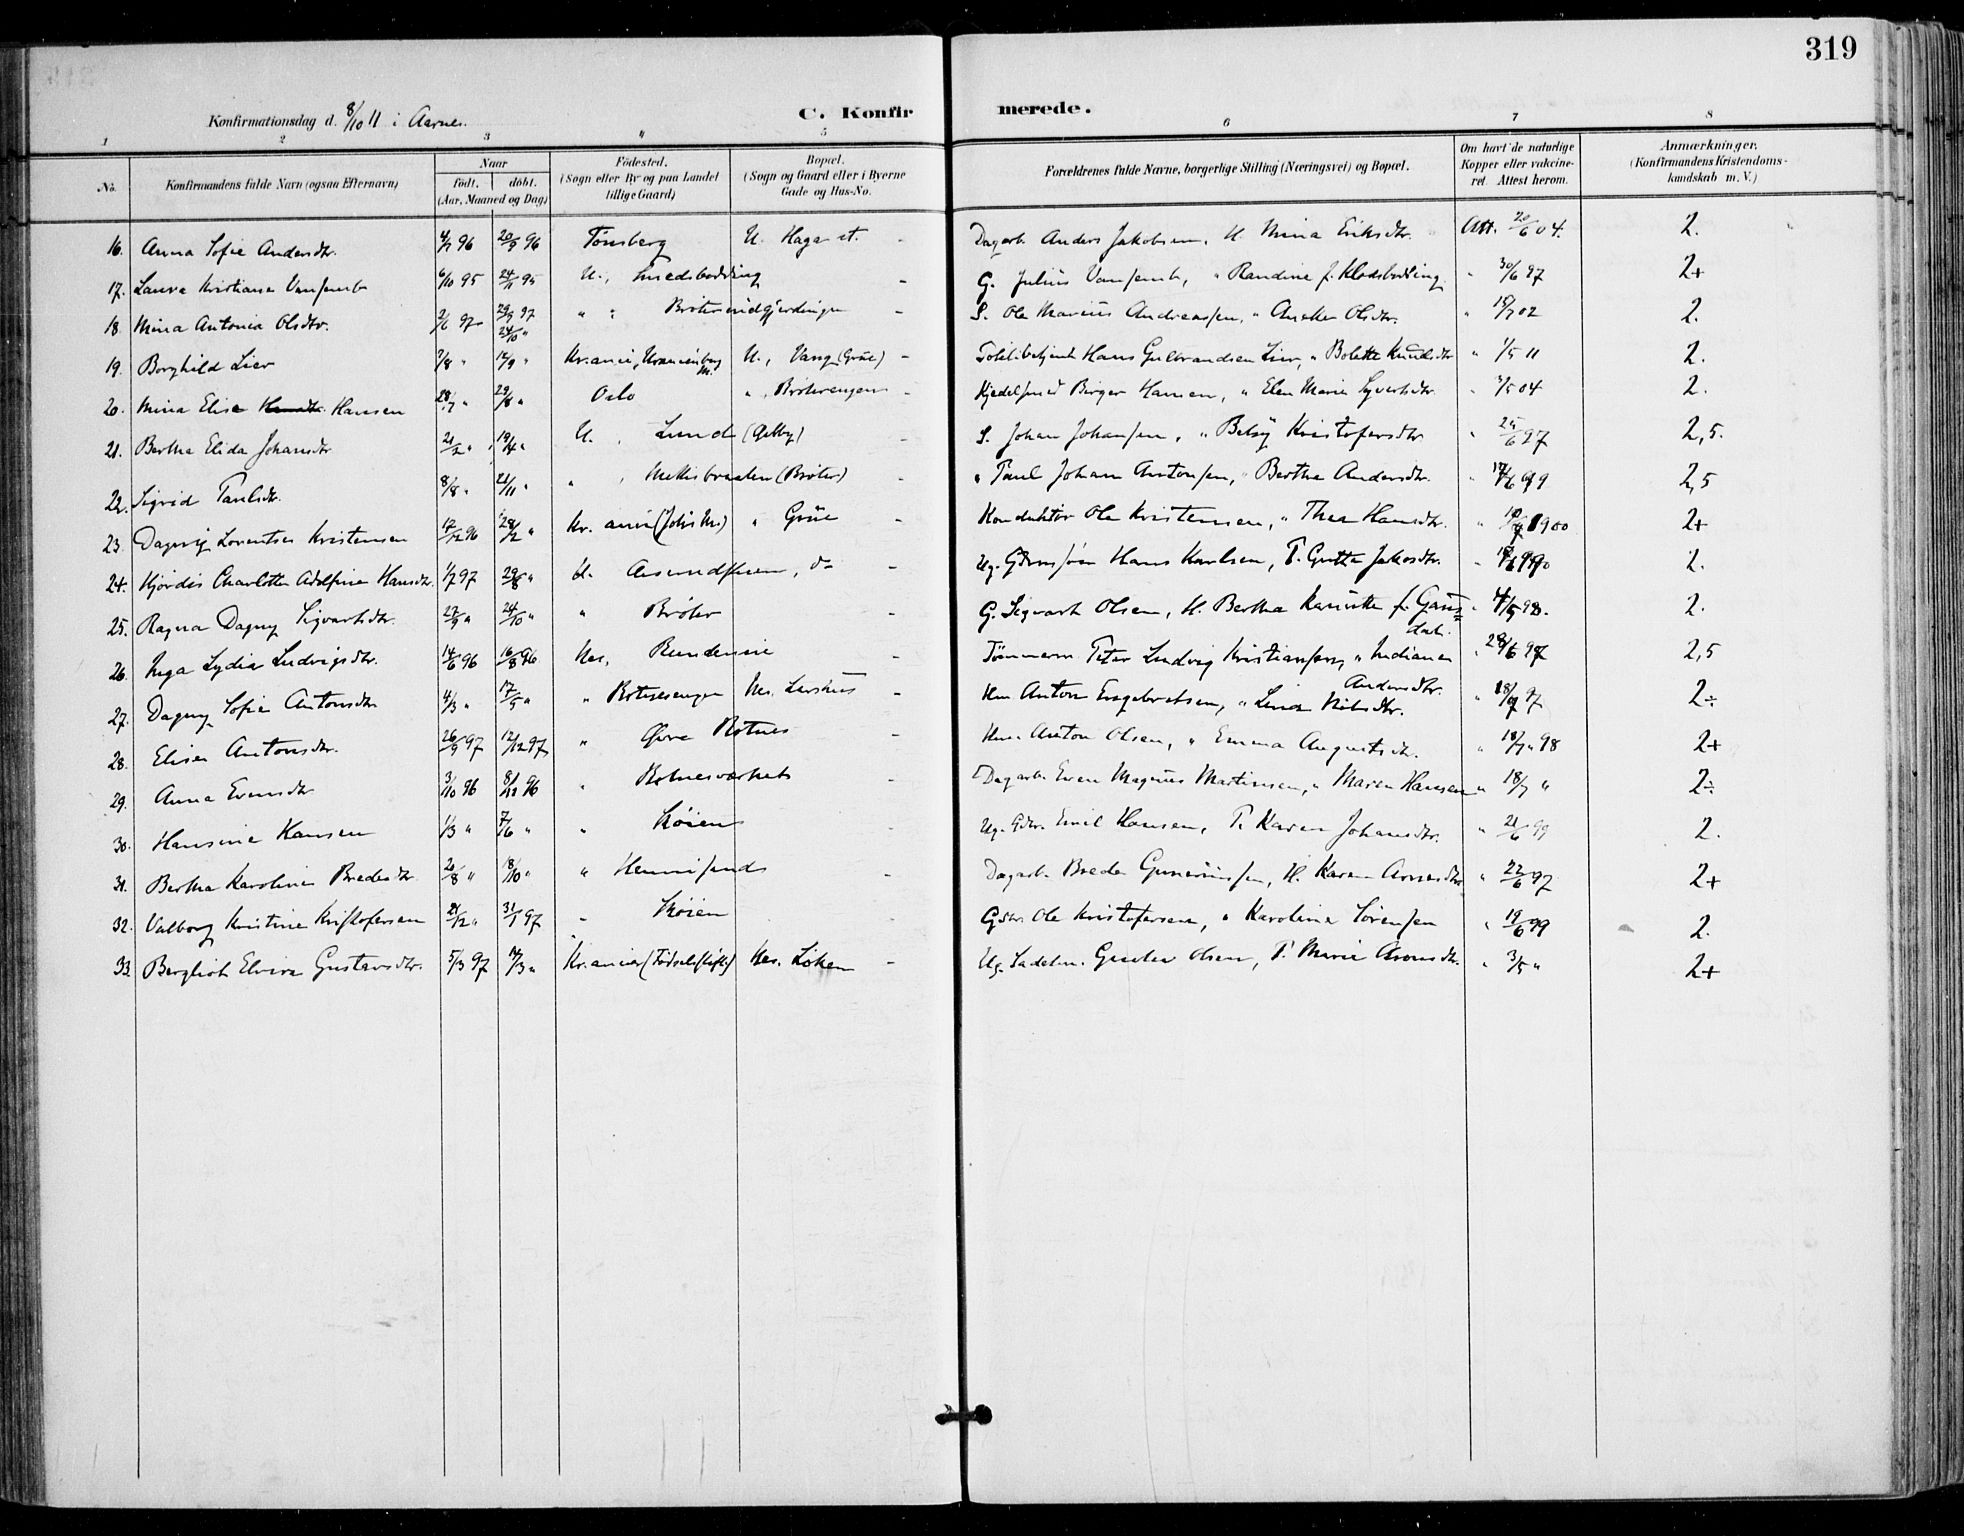 319
Konfirmationsdag d. 8/10 11 i Aarnes.
C. Konfirmerede.
1 2 3 " 5 6 7 8
No. Konfirmandens fulde Navn (ogsaa Efternavn) Naar født. døbt. (Aar, Maaned og Dag) Fødested. (Sogn eller By og paa Landet tillige Gaard) Bopæl. (Sogn og Gaard eller i Byerne Gade og Hus-No. Forældrenes fulde Navne, borgerlige Stilling (Næringsvei) og Bopæl. Om havt de naturlige Kopper eller vakcineret. Attest herom. Anmærkninger. (Konfirmandens Kristendomskundskab m. V.)
16. Anna Sofie Andersdtr. 4/7 96 20/9 96 Tønsberg U. Haga st. - Dagarb. Anders Jakobsen, H. Mina Eriksdtr. Att. 20/6 04. 2.
17. Laura Kristiana 6/10 95 24/11 95 U., - G. Julius " Randine f. " 30/6 97 2+
18. Mina Antonia Olsdtr. 2/6 97 29/9 97 24/10 " " " - S. Ole Marius Andreassen, " Olsdtr. " 15/7 02 2.
19. Borghild Lier 7/8 " 12/9 " Kr.ania, Uranienborg M. U., Vang (Grue) - Hans Gulbrandsen Lier, " Bolette Knudsdtr " 1/5 11 2.
20. Mina Elise Hansen 28/7 " 29/8 " Oslo " - Kjedelsmed Birger Hansen, " Elen Marie Syversdtr. " 3/5 04 2.
21. Bertha Elida Johansdtr 21/2 " 19/4 " U. Lund - S. Johan Johansen, " Betsy Kristofersdtr " 25/6 97 2,5.
22. Sigrid Paulsdtr. 8/8 " 21/11 " " (Brøter) - " Paul Johan Antonsen, " Bertha Andersdtr. " 2,5
23. Dagny Lorentse Kristensen 17/12 96 28/2 " Kr. ania (Johs M.) " Grue - Konduktør Ole Kristensen, " Thea Hansdtr. " 1900 2+
24. Hjørdis Charlotte Adolfine Hansdtr. 1/7 97 29/8 " U. do - Ug. Hans Karlsen, P. Jakobsdtr. " 2.
25. Ragna Dagny Sigvartsdtr. 27/9 " 24/10 " " Brøter - G. Sigvart Olsen, H. Bertha f. " 2.
26. Inga Lydia Ludvigsdtr. 14/6 96 16/8 96 Nes, - Tømmerm. Peter Ludvig Kristiansen, " Indiana Andersdtr. " 2,5
27. Dagny Sofie Antonsdtr 4/3 " 17/5 " " Nes. - Hm Anton Engebretsen, " Lina Nilsdtr. " 18/7 97 2÷
28. Elise Antonsdtr. 26/9 97 12/12 97 " Øvre Rotnes - Hm. Anton Olsen, " Emma Augustsdtr. " 18/7 98 2+
29. Anna Evensdtr 3/10 96 8/12 96 " - Dagarb. Even Magnus Martinsen, " Maren Hansen " 18/7 " 2÷
30. Hansine Hansen 1/3 " 7/6 " " Skøien - Ug. Gdbr. Emil Hansen, P. Karen Johansdtr. " 21/6 99 2.
31. Bertha Karoline Bredesdtr. 20/8 " 18/10 " " Hennisund - Dagarb. Brede Gunerinsen, H. Karen Arnesdtr. " 22/6 97 2+
32. Valborg Kristine Kristofersen 21/12 " 31/1 97 " Skøien - Gdbr. Ole Kristofersen, " Karoline Sørensen " 19/6 99 2.
33. Bergliot Elvira Gustavsdtr. 5/3 97 14/3 " Kr.ania (Fødselsstift.) Nes. Løken - Ug. Sadelm. Gustav Olsen, P. Marie " 3/5 " 2+